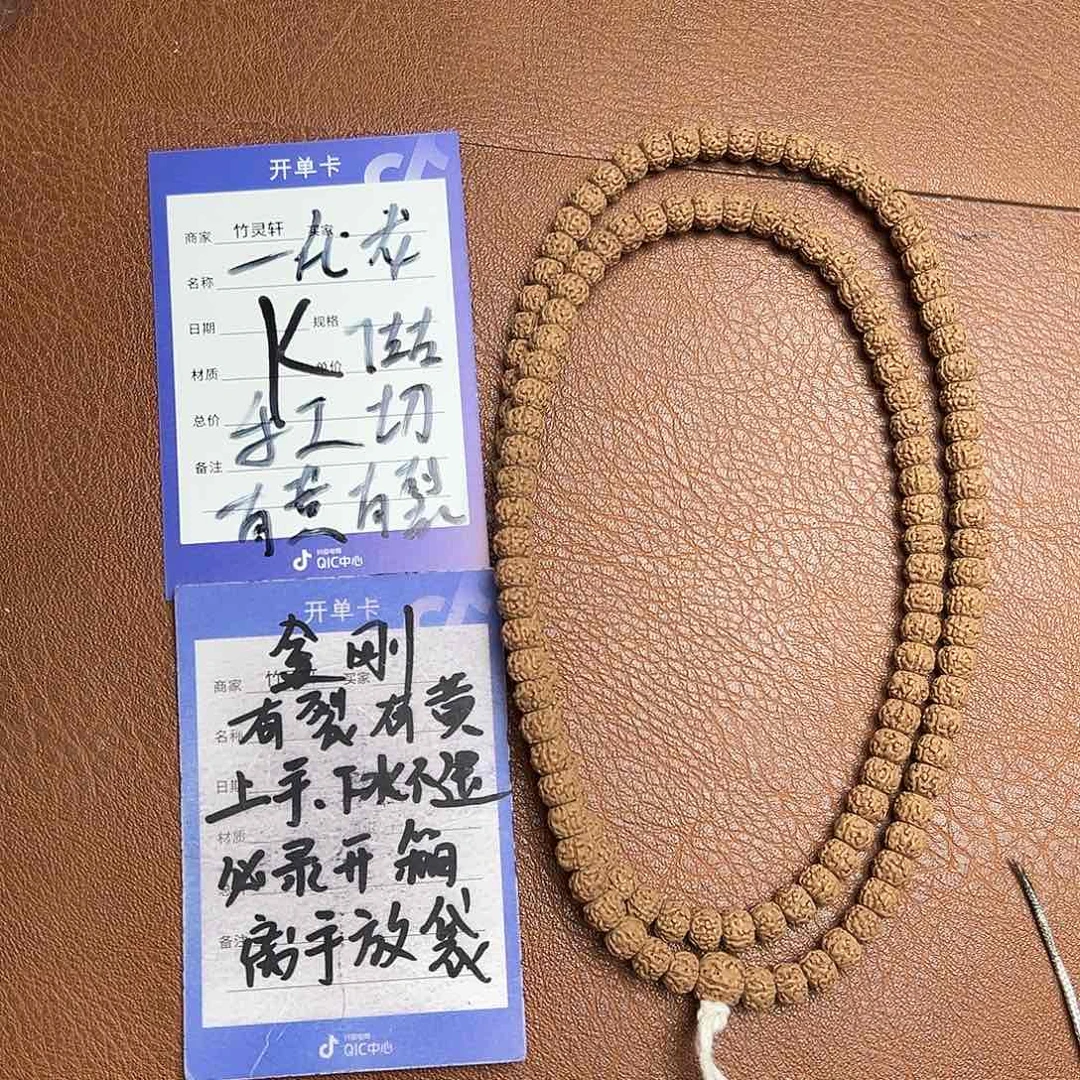 开单卡
商家 竹灵轩 买家
一九龙
名称
日期 规格
K 1钻
材质 单价
总价
手工切
备注
有煮有裂
抖音电商
QIC中心
开单卡
金刚
商家 竹 轩 买家
有裂有黄
名称
上手.下水不退
日期
材质
必录开箱
备注
离手放袋
抖音电商
QIC中心